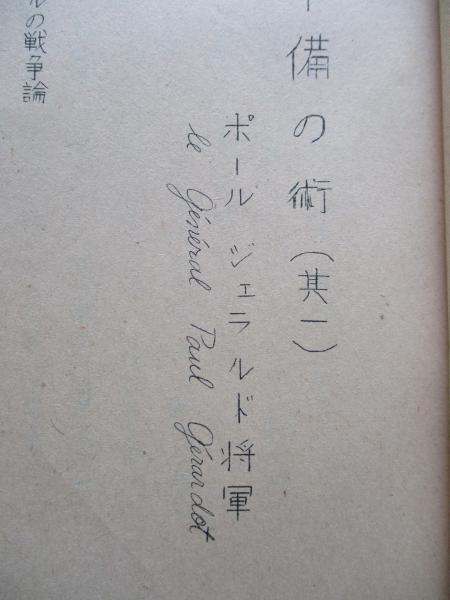 備の術（其一）
ポール ジェラルド将軍
le Général Paul Gérardot
ルの戦争論